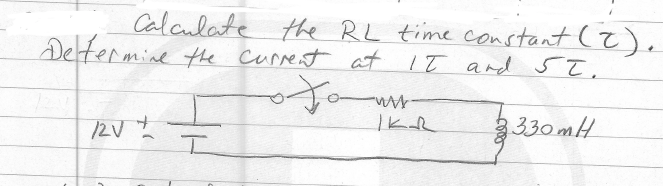 Calculate the RL time constant (τ).
Determine the current at 1τ and 5τ.
12V + -
1KΩ
330mH